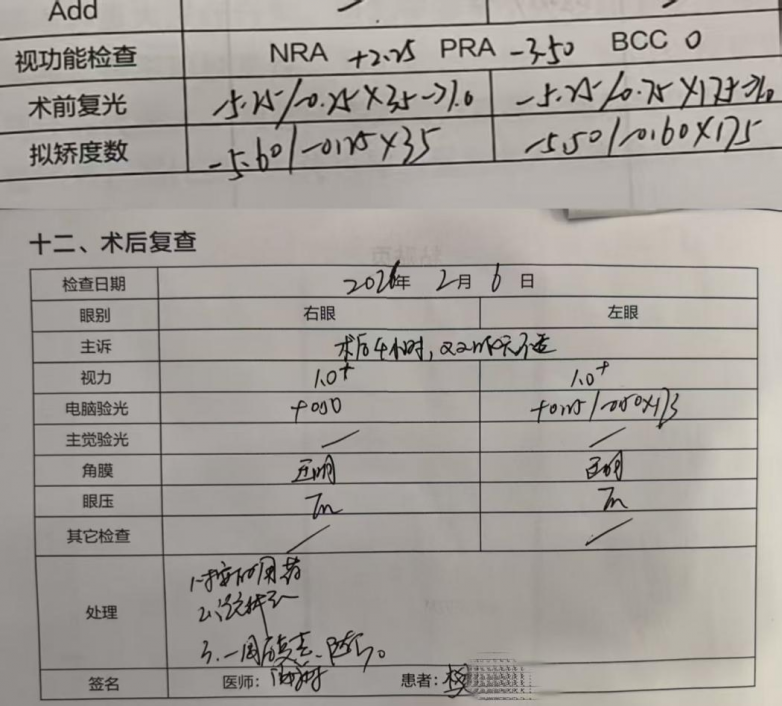 Add
视功能检查 NRA +2.25 PRA -3.50 BCC 0
术前复光 -5.25/-0.25×35→1.0 -5.25/-0.75×175→1.0
拟矫度数 -5.60/-0.25×35 -5.50/-0.60×175
十二、术后复查
检查日期 2026年 2月 6日
眼别 右眼 左眼
主诉 术后4小时，
视力 1.0⁺ 1.0⁺
电脑验光 +0.50 +0.25/-0.50×173
主觉验光
角膜 透明 透明
眼压 Tn Tn
其它检查
处理
1.按时用药
2.
3.一周后复查、随诊。
签名 医师： 患者：